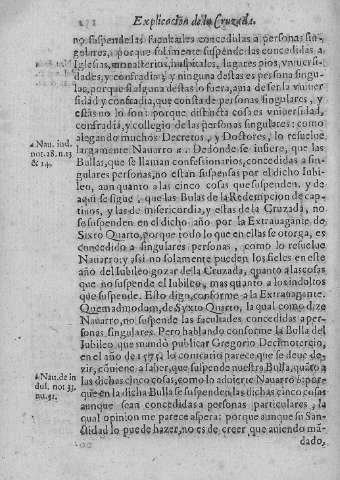 Explicacion de la Cruzada.
no suspende las facultades concedidas a personas sin-
gulares, porque solamente suspende las concedidas a
Iglesias, monasterios, hospitales, lugares pios, vniuersi-
dades, y confradias; y ninguna destas es persona singu-
lar, porque si alguna destas lo fuera, auia de ser la vniuer
sidad y confradia, que consta de personas singulares, y
estas no lo son: porque distincta cosa es vniuersidad,
confradia, y collegio de las personas singulares: como
alegando muchos Decretos, y Doctores, lo resuelue
largamente Nauarro a. De donde se infiere, que las
Bullas, que se llaman confessionarios, concedidas a sin-
gulares personas, no estan suspensas por el dicho Iubi-
leo, aun quanto a las cinco cosas que suspenden, y de
aqui se sigue, que las Bulas de la Redempcion de cap-
tiuos, y las de misericordia, y ellas de la Cruzada, no
se suspenden en el dicho año por la Extrauagante de
Sixto Quarto, porque todo lo que en ellas se otorga, es
concedido a singulares personas, como lo resuelue
Nauarro: y assi no solamente pueden los fieles en este
año del Iubileo gozar de la Cruzada, quanto a las cosas
que no suspende el Iubileo, mas quanto a los indultos
que suspende. Esto digo, conforme a la Extrauagante.
Quemadmodum, de Syxto Quarto, la qual como dize
Nauarro, no suspende las facultades concedidas a per-
sonas singulares. Pero hablando conforme la Bulla del
Iubileo que mandò publicar Gregorio Decimotercio,
en el año de 1575 lo contrario parece que se deue de-
zir, conuiene a saber, que suspende nuestra Bulla, quãto a
las dichas cinco cosas, como lo aduierte Nauarro b: porq̃
en la dicha Bulla se suspenden las dichas cinco cosas
aunque sean concedidas a personas particulares, la
qual opinion me parece aspera: porque aunque su San-
ctidad lo puede hazer, no es de creer que auiendo mã-
dado,
a Nau. iud.
not. 28. n. 13
& 14.
b Nau. de in
dul. not 33.
nu. 51.